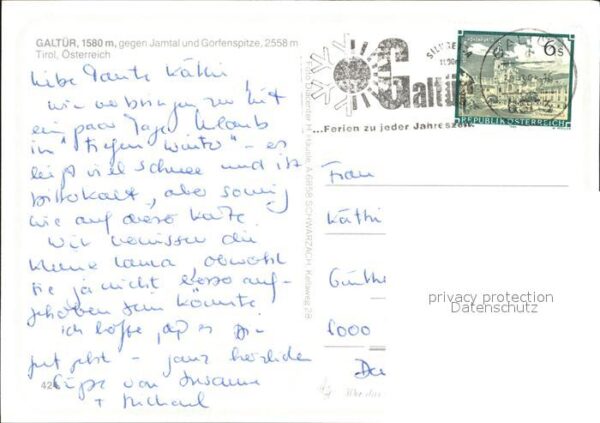 GALTÜR, 1580 m, gegen Jamtal und Gorfenspitze, 2558 m
Tirol, Österreich
Liebe Tante Käthi,
wir verbringen zur Zeit
ein paar Tage Urlaub
im "tiefen Winter" - es
liegt viel Schnee und ist
bitterkalt, aber sonnig
wie auf dieser Karte.
Wir vermissen die
kleine Laura, obwohl
sie ja nicht besser auf-
gehoben sein könnte
ich hoffe, daß es Dir
gut geht - ganz herzliche
Grüße von Susanne
+ Michael
42
A-6858 SCHWARZACH
Galtür
...Ferien zu jeder Jahreszeit
6 S
REPUBLIK ÖSTERREICH
Frau
Käthi
Günthe
6000
privacy protection
Datenschutz